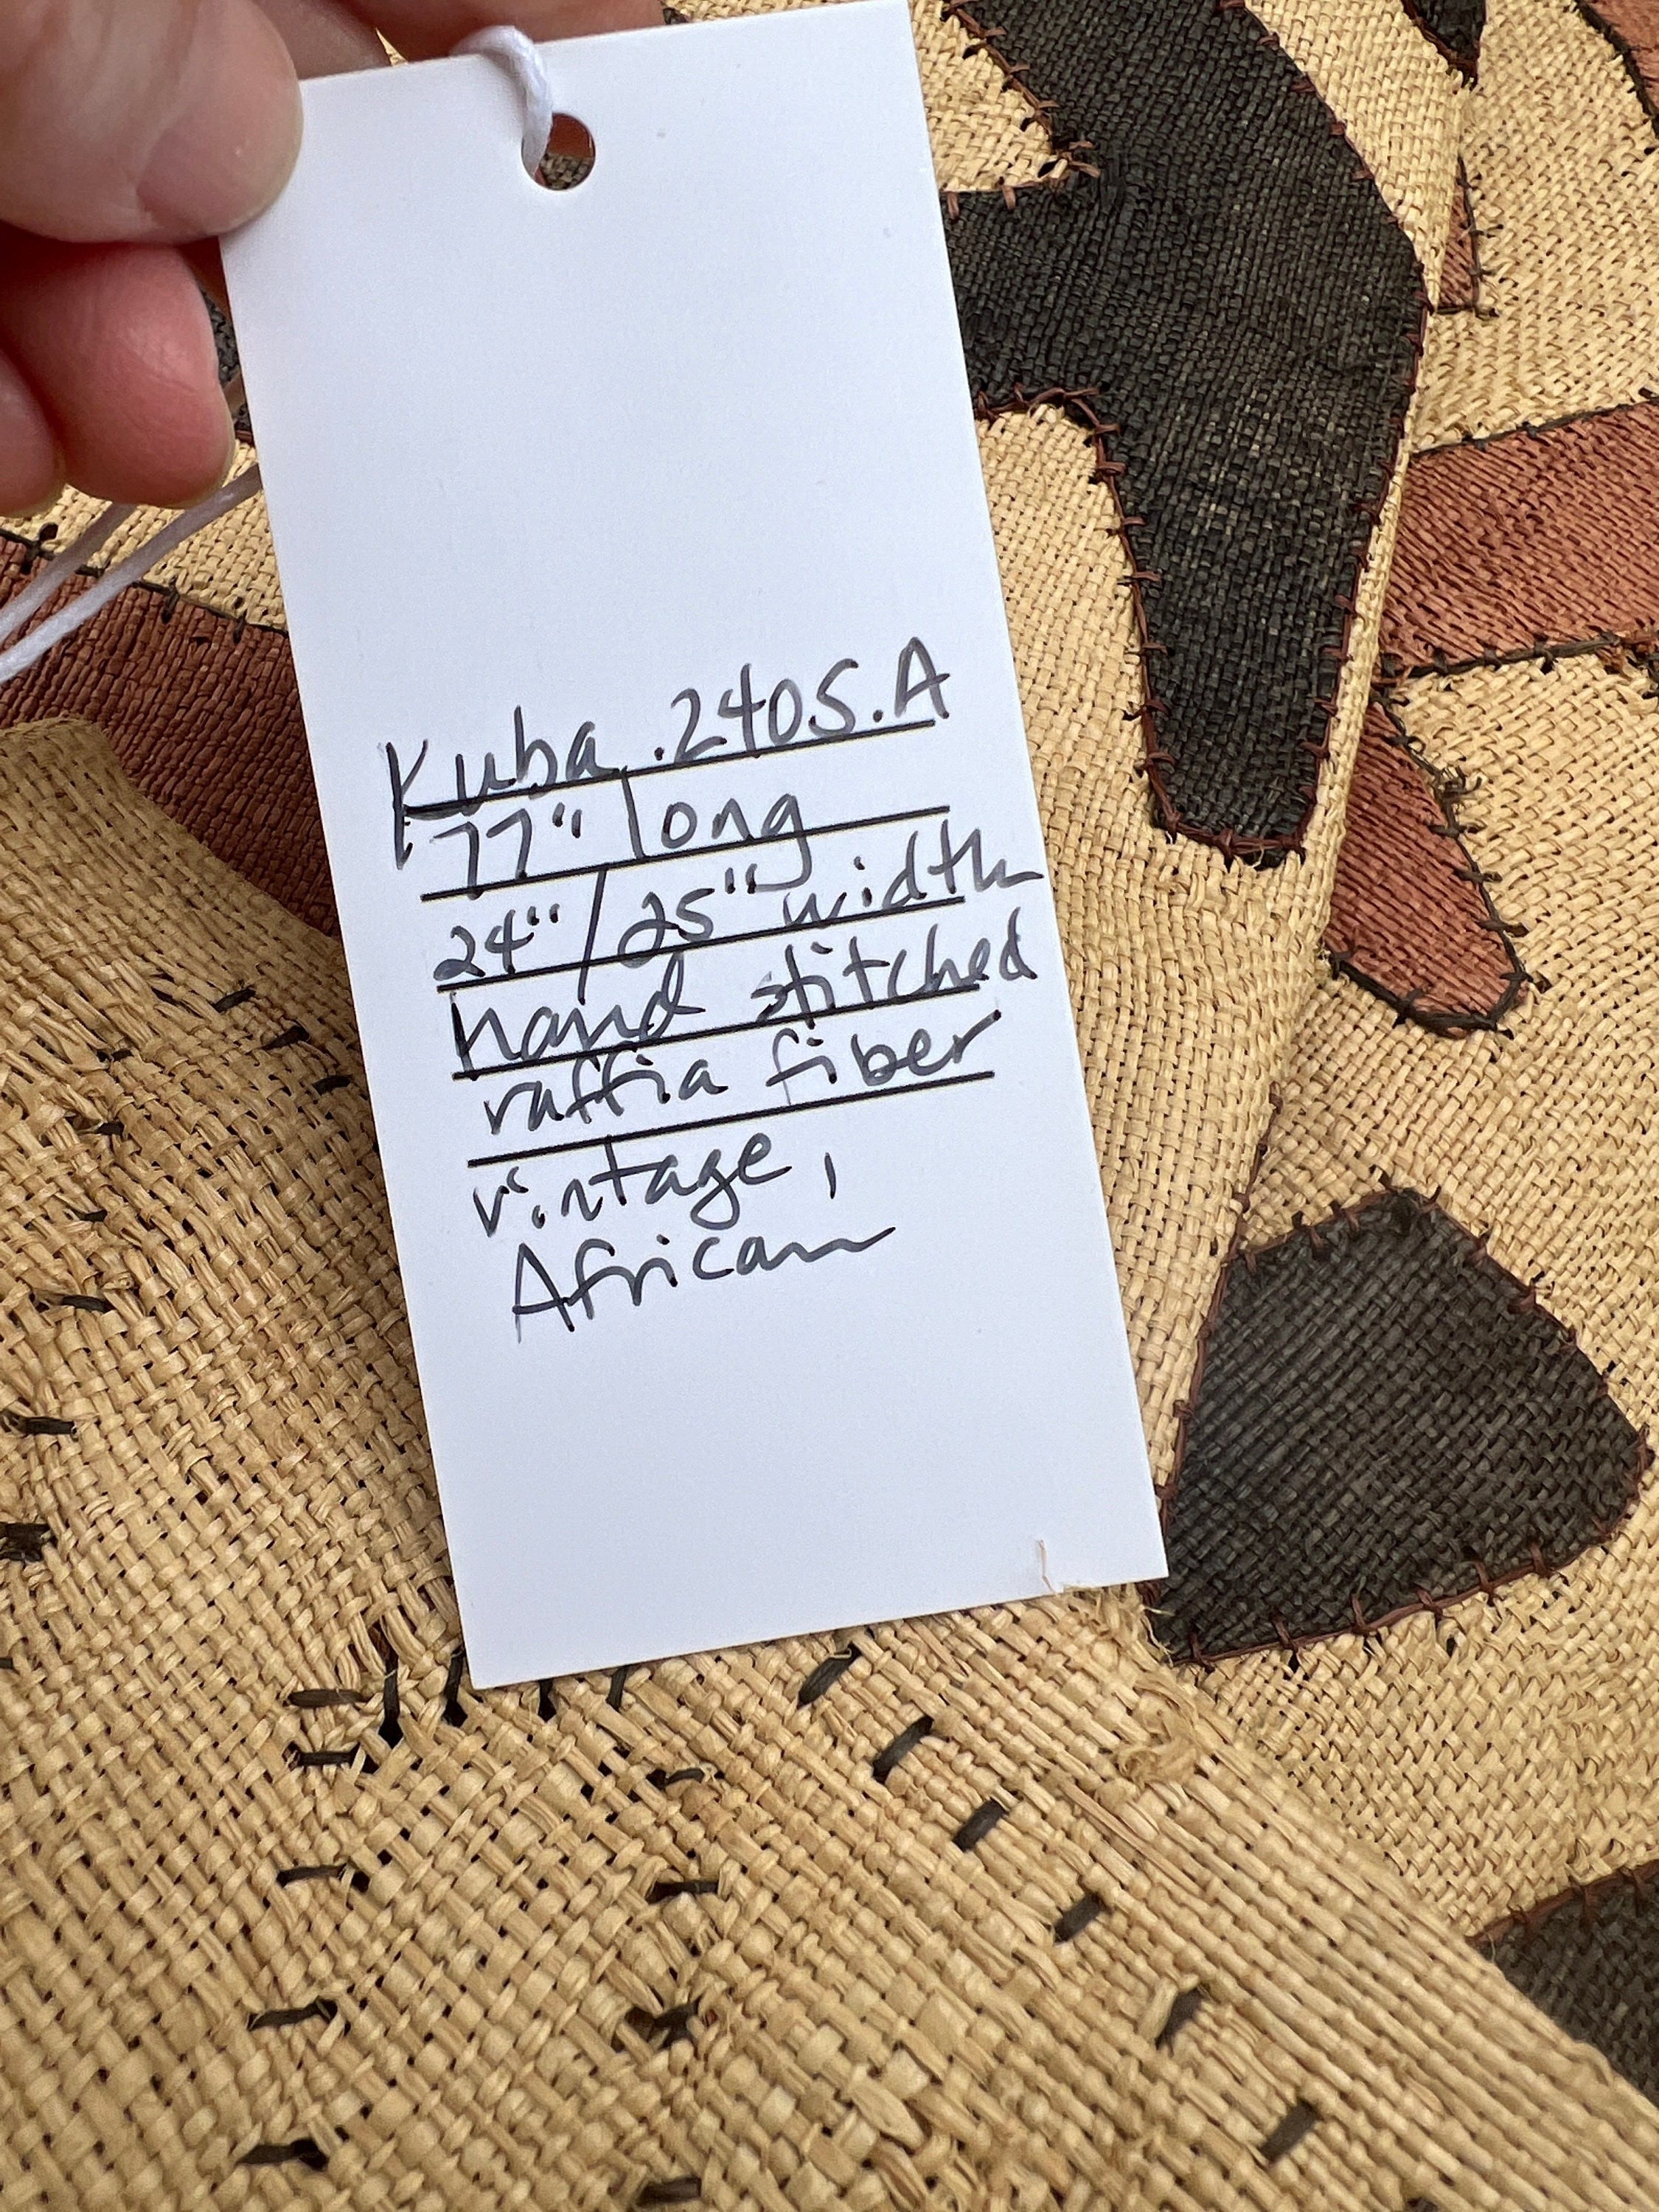 Kuba .2405.A
77" long
24"/25" width
hand stitched
raffia fiber
vintage,
African